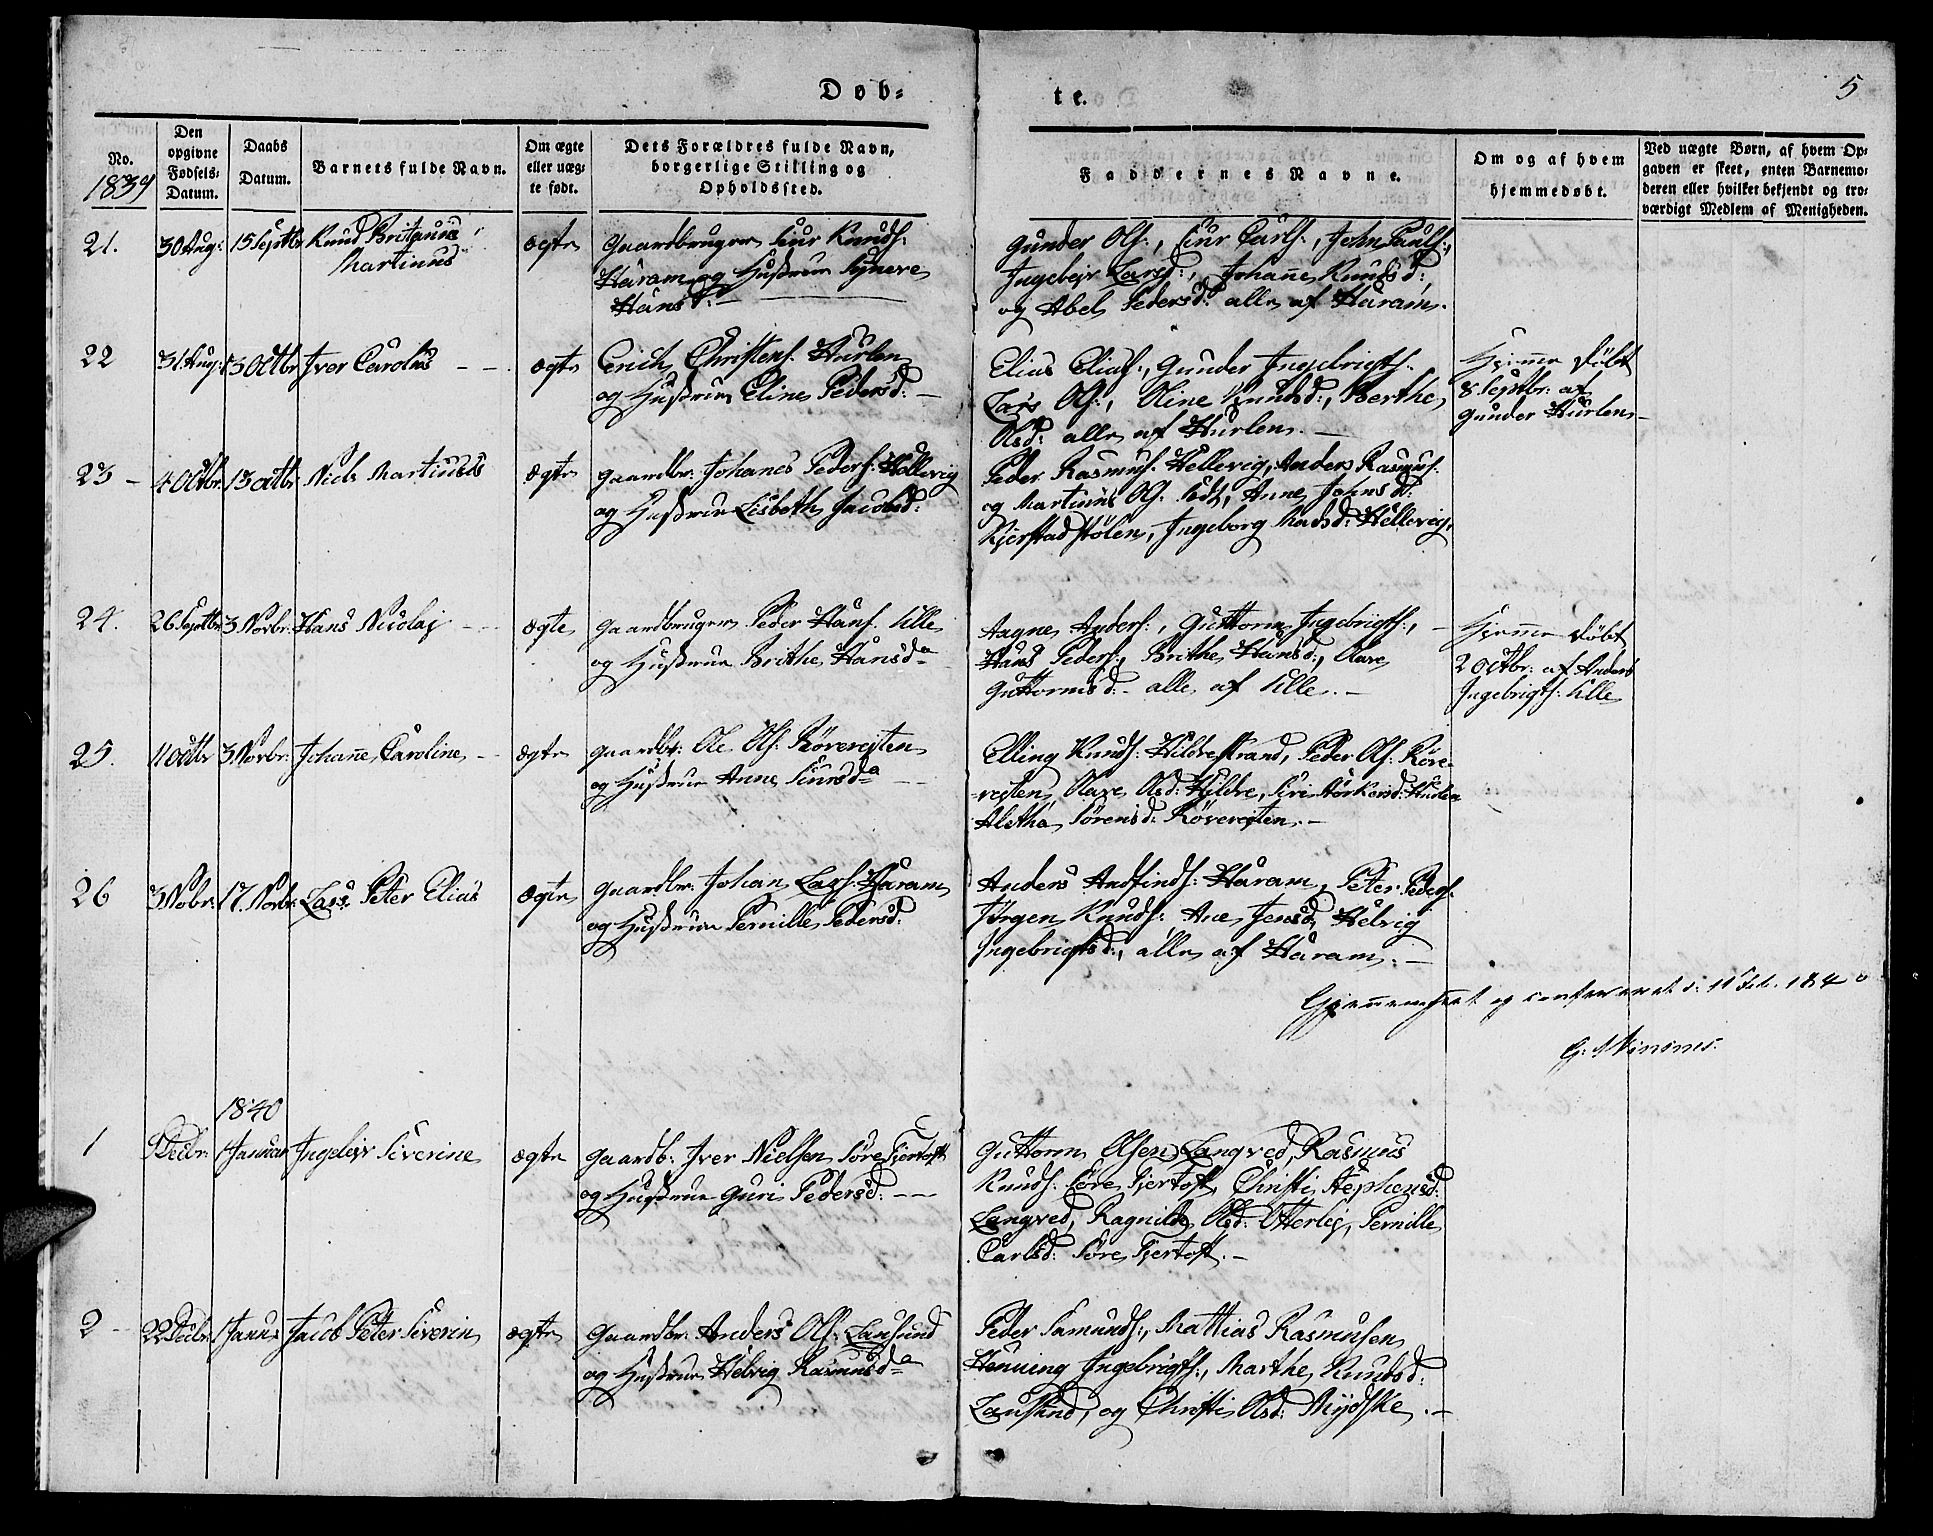 Døb-
te.
5
No.
1839
Den
opgivne
Fødsels-
Datum.
Daabs
Datum.
Barnets fulde Navn.
Om ægte
eller uæg-
te født.
Dets Forældres fulde Navn,
borgerlige Stilling og
Opholdssted.
Faddernes Navne.
Om og af hvem
hjemmedøbt.
Ved uægte Børn, af hvem Op-
gaven er skeet, enten Barnemo-
deren eller hvilket bekjendt og tro-
værdigt Medlem af Menigheden.
21. 30 Aug: 15 Septbr Knud Britanus
Martinus
ægte
Gaardbruger Siur Knuds:
Haram og Hustrue Synere
Hansd:
Gunder Ols:, Siur Carls:, John Pauls:,
Ingeleiv Larsd:, Johanne Knudsd:
og Abel Pedersd: alle af Haram.
22 31 Aug: 13 Octbr Iver Carolus
ægte
Erich Christens: Hurlen
og Hustrue Eline Pedersd:
Elias Elias:, Gunder Ingebrigts:
Lars Ols:, Oline Knudsd:, Berthe
Olsd: alle af Hurlen.
Hjemme døbt
8 Septbr: af
Gunder Hurlen
23 4 Octbr: 13 Octbr Niels Martinus
ægte
Gaardbr: Johanes Peders: Hellevig
og Hustrue Lisbeth Jacobsd:
Peder Rasmus: Hellevig, Anders Rasmus:
og Martinus Ols: , Anne Johnsd:
Kjerstadstølen, Ingeborg Madsd: Hellevig.
24. 26 Septbr 3 Novbr: Hans Nicolai
ægte
Gaardbruger Peder Hans: Ulle
og Hustrue Brithe Hansda
Aagne Anders:, Guttorm Ingebrigts:,
Hans Peders:, Brithe Hansd:, Olave
Guttormsd: alle af Ulle.
Hjemme døbt
2 Octbr: af Anders
Ingebrigts: Ulle
25. 11 Octbr 3 Novbr: Johanne Caroline
ægte
Gaardbr: Ole Ols: Røverejten
og Hustrue Anne Siursda
Elling Knuds: Hildrestrand, Peder Ols: Røve-
rejten, Olave Olsd: Hildre, Siri Hurlen
Aletha Sørensd: Røverejten.
26 3 Nobr: 17. Novbr: Lars Peter Elias
ægte
Gaardbr: Johan Lars: Haram
og Hustrue Pernille Pedersd:
Anders Andfinds: Haram, Peter Peders:
Jørgen Knuds: Ane Jensd, Helvig
Ingebrigtsd:, alle af Haram.
Gjennemseet og confereret d: 11 Feb. 1840
1840
1 Decbr: 1 Januar Ingeleiv Severine
ægte
Gaardb: Iver Nielsen Søre Fjertoft
og Hustrue Guri Pedersd:
Guttorm Olsen Langved, Rasmus
Knuds: Søre Fjertoft, Christi Stephensd:
Langved, Ragnilde Olsd: Otterlej, Pernille
Carlsd: Søre Fjertoft.
2 22 Decbr: 1 Januar Jacob Peter Severin
ægte
Gaardbr: Anders Ols: Lausund
og Hustrue Helvig Rasmusda
Peder Samunds:, Mattias Rasmusen
Henning Ingebrigts:, Marthe Knudsd:
Lausund, og Christi Olsd: Mydske.